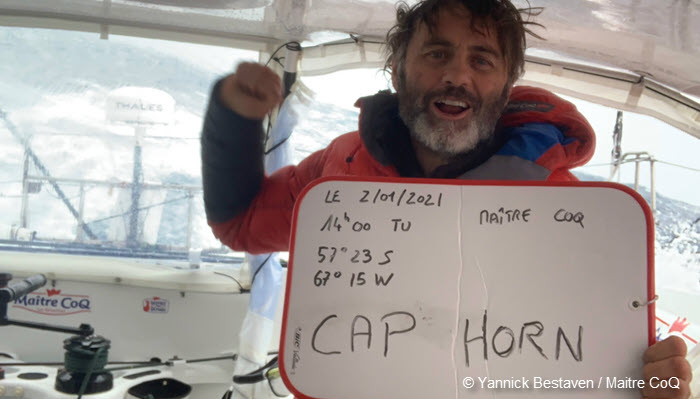 THALES
LE 2/01/2021
14h00 TU
57° 23 S
67° 15 W
MAÎTRE COQ
CAP HORN
Maître CoQ
© Yannick Bestaven / Maitre CoQ